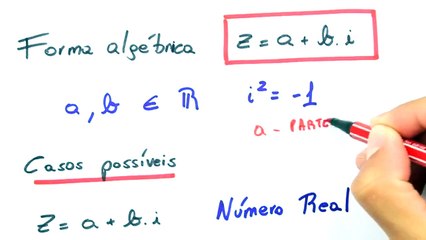 Forma algébrica
z = a + b.i
a, b ∈ ℝ
i² = -1
a - PARTE
Casos possíveis
z = a + b.i
Número Real